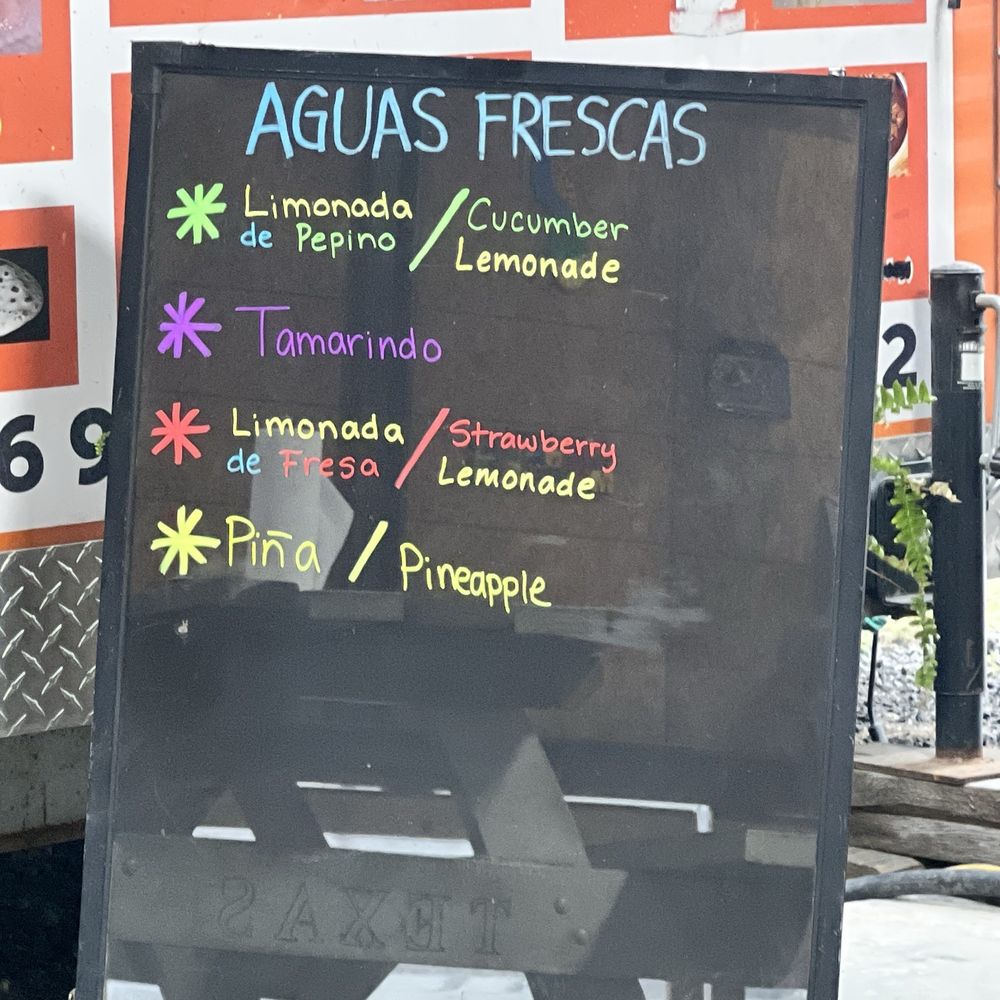 AGUAS FRESCAS
Limonada / Cucumber
de Pepino Lemonade
Tamarindo
Limonada / Strawberry
de Fresa Lemonade
Piña / Pineapple
69
2
TEXAS